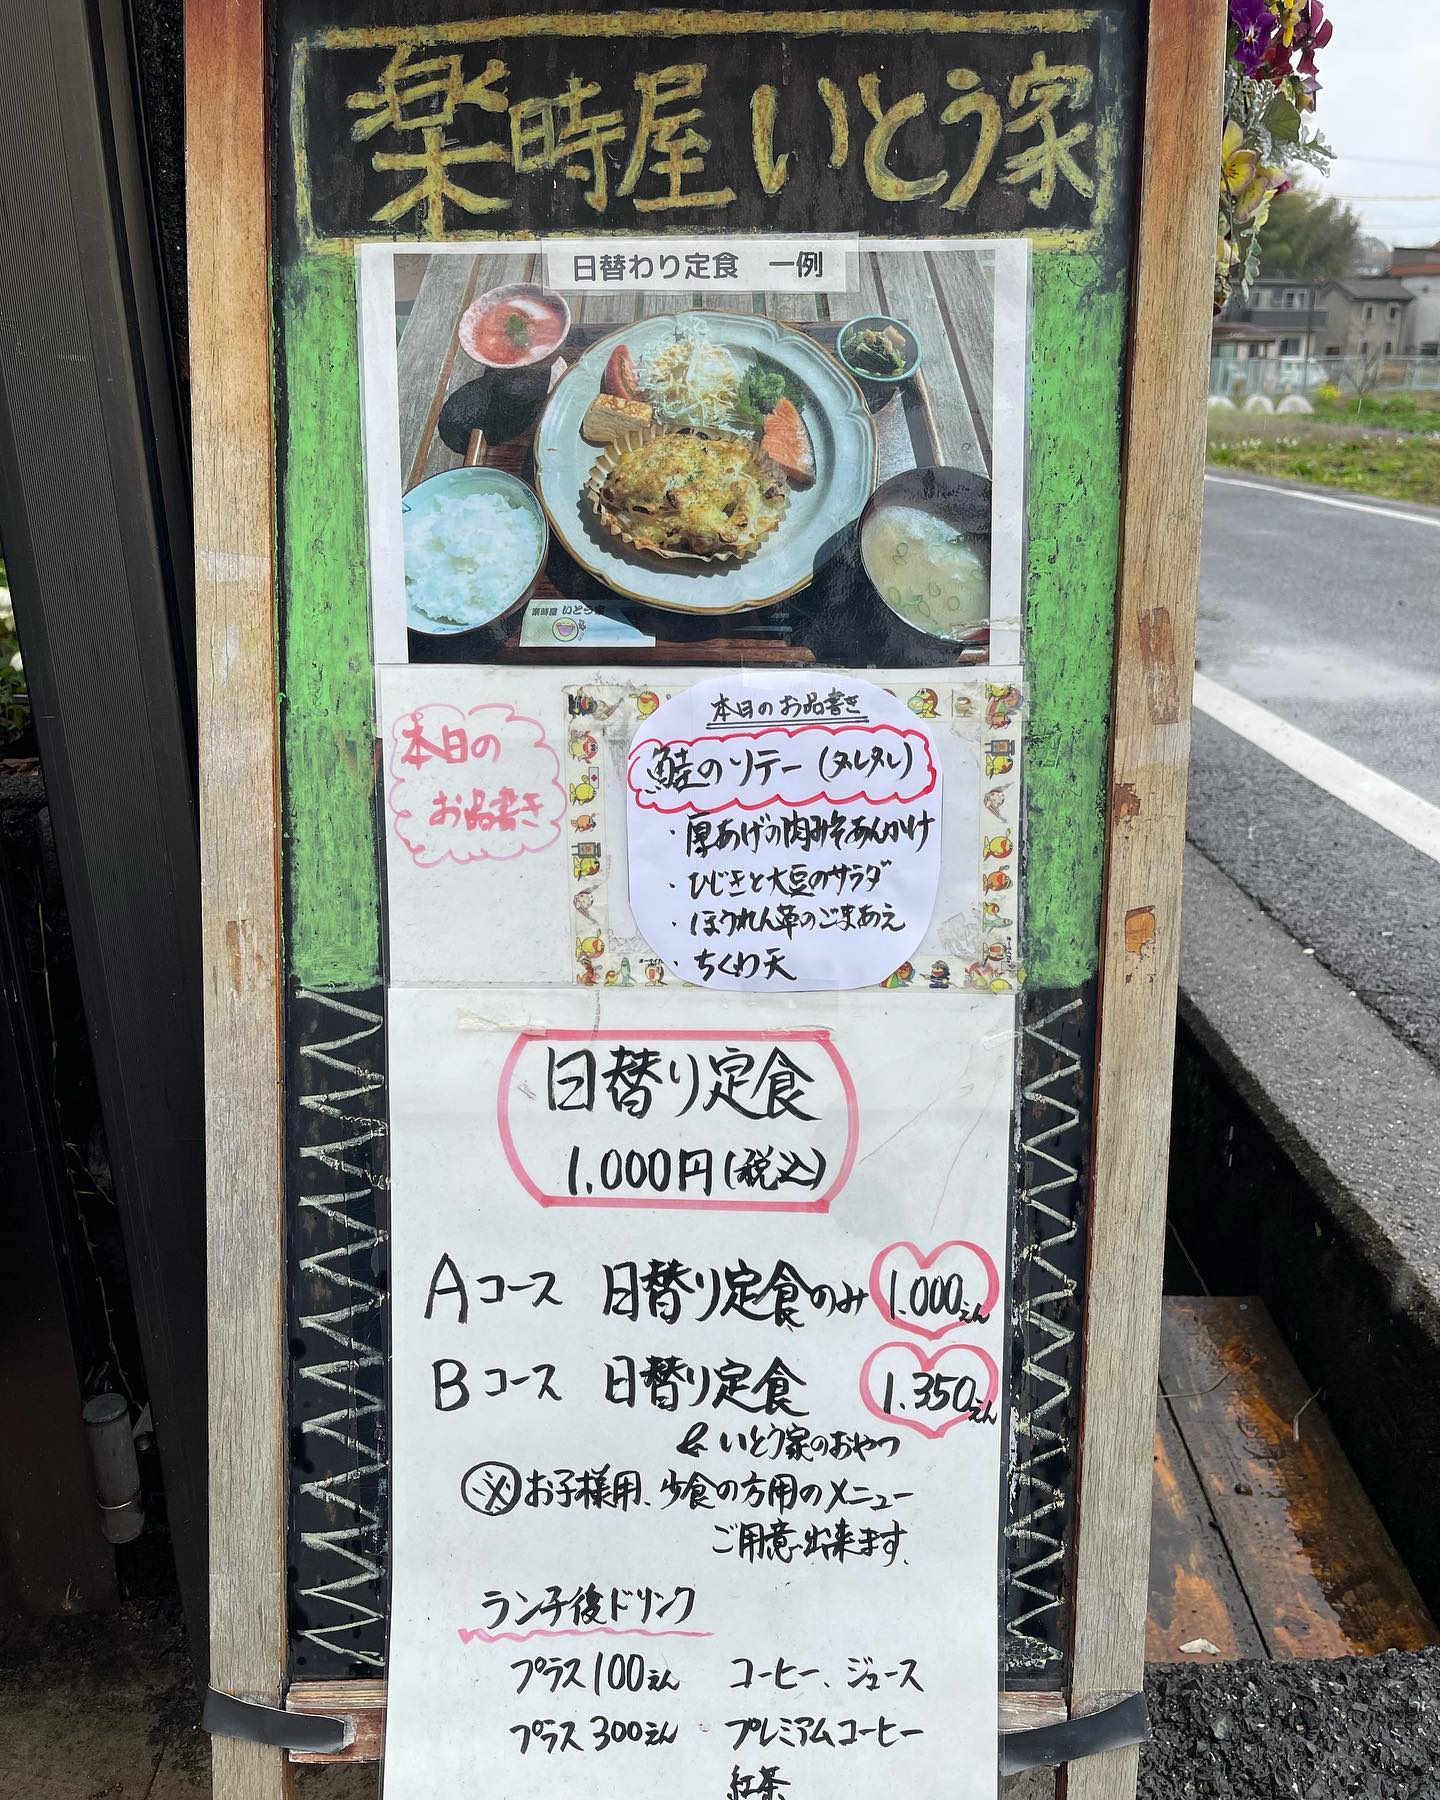 楽時屋 いとう家
日替わり定食 一例
楽時屋 いとう家
本日の
お品書き
本日のお品書き
鮭のソテー(タレタレ)
・厚あげの肉みそあんかけ
・ひじきと大豆のサラダ
・ほうれん草のごまあえ
・ちくわ天
日替り定食
1.000円(税込)
Aコース 日替り定食のみ 1.000えん
Bコース 日替り定食 1.350えん
& いとう家のおやつ
※お子様用、少食の方用のメニュー
ご用意出来ます。
ランチ後ドリンク
プラス100えん コーヒー、ジュース
プラス300えん プレミアムコーヒー
紅茶